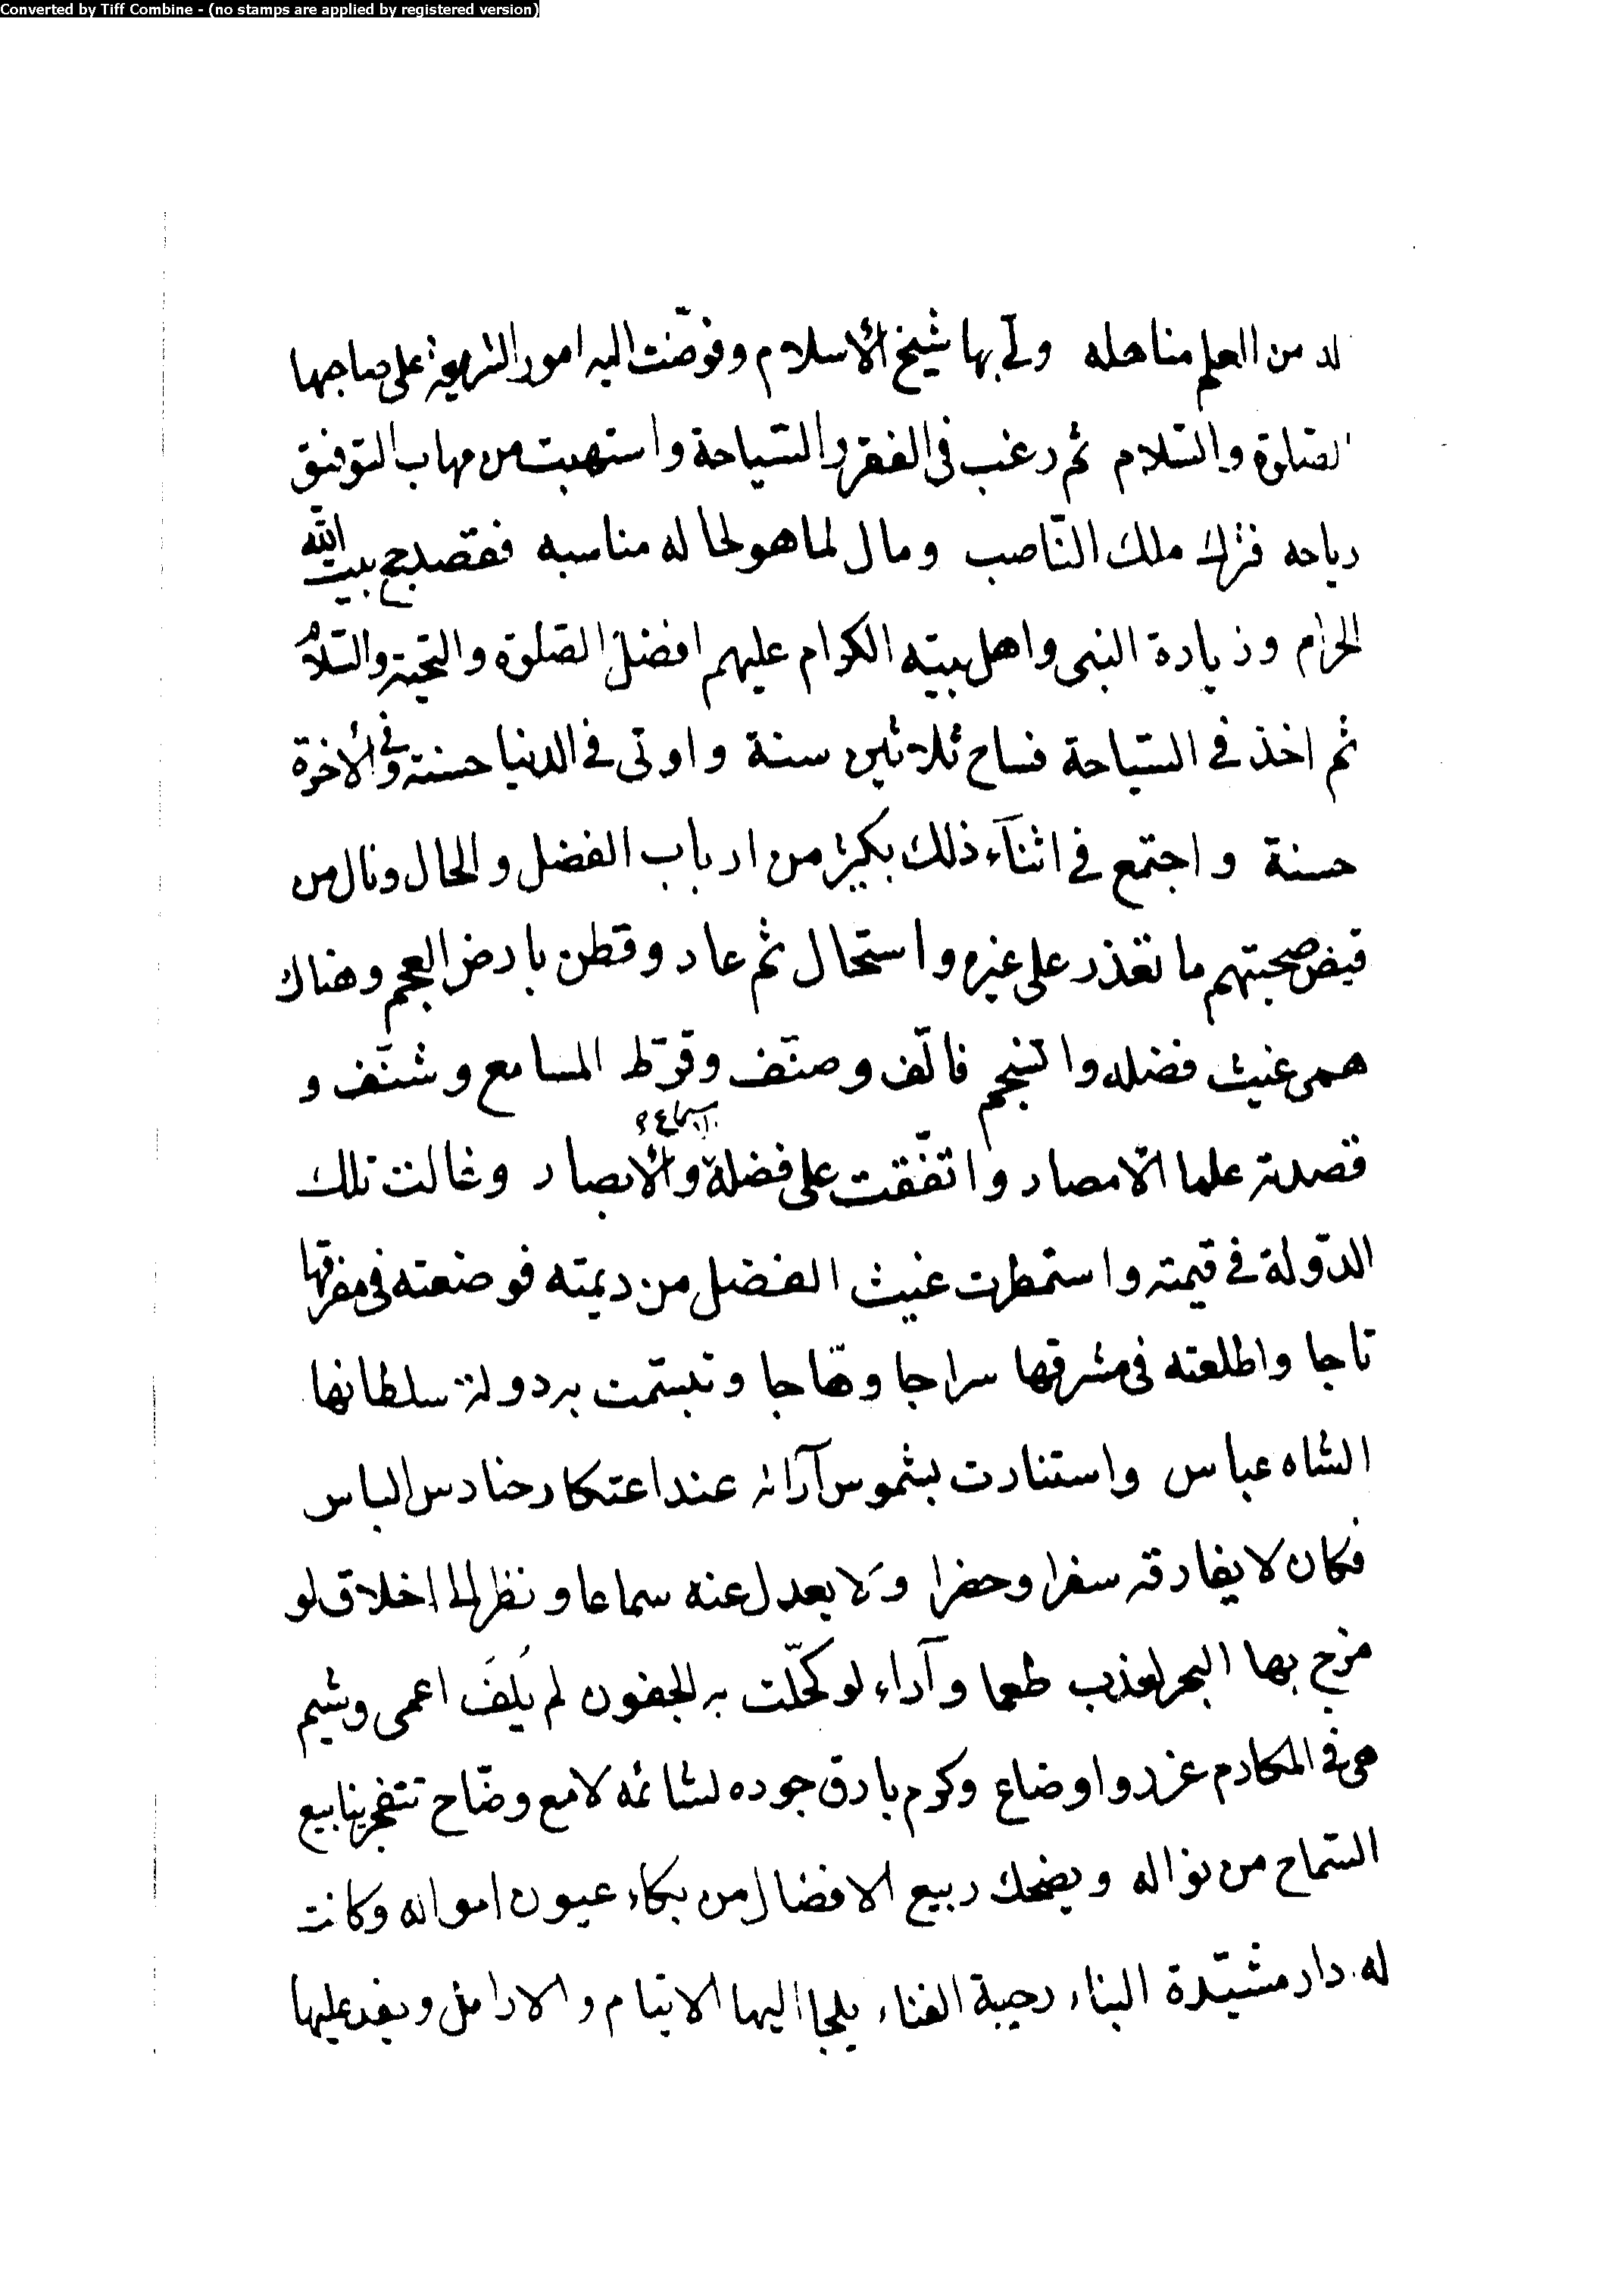 Converted by Tiff Combine - (no stamps are applied by registered version)
له من العلم مناهله ولّى بها شيخ الأسلام وفوّضت اليه امور الشريعة على صاحبها
الصّلوة والسّلام ثم رغب فى الفقر والسّياحة واستهبت من مهاب التوفيق
رياحه فترك ملك النّاصب ومال لما هو لحاله مناسبه فقصد حج بيت الله
الحرام وزيارة النبى واهل بيته الكرام عليهم افضل الصّلوة والتحية والسّلام
ثم اخذ فى السّياحة فساح ثلاثين سنة واوتى فى الدنيا حسنة وفى الأخرة
حسنة واجتمع فى اثنآء ذلك بكثير من ارباب الفضل والحال ونال من
فيض صحبتهم ما تعذر على غيره واستحال ثم عاد وقطن بارض العجم وهناك
همى غيث فضله وانسجم فالّف وصنّف وقرّط المسامع وشنّف و
قصدته علما الأمصار واتّفقت على فضله والأبصار وغالت تلك
الاسماع
الدّولة فى قيمته واستمطرت غيث الفضل من ديمته فوضعته فى مفرقها
تاجا واطلعته فى مشرقها سراجا وهّاجا وتبسّمت به دولة سلطانها
الشاه عباس واستنارت بشموس آرائه عند اعتكار حنادس الباس
فكان لا يفارقه سفرا وحضرا ولا يعدل عنه سماعا ونظرا الى اخلاق لو
مزج بها البحر لعذب طعما وآراء لو كحّلت به الجفون لم يُلفَ اعمى وشيم
هى فى المكارم غرر واوضاع وكرم بارق جوده لشائمه لامع وضّاح تتفجر ينابيع
السّماح من نواله ويضحك ربيع الافضال من بكاء عيون امواله وكانت
له دار مشيّدة البناء رحبة الفناء يلجا اليها الايتام والارامل ويفد عليها